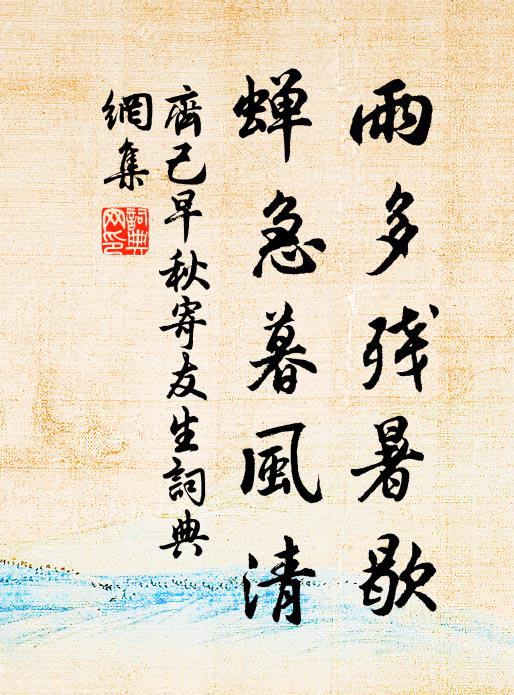 雨多残暑歇
蝉急暮風清
齊己早秋寄友生詞典
網集
詞典
网印